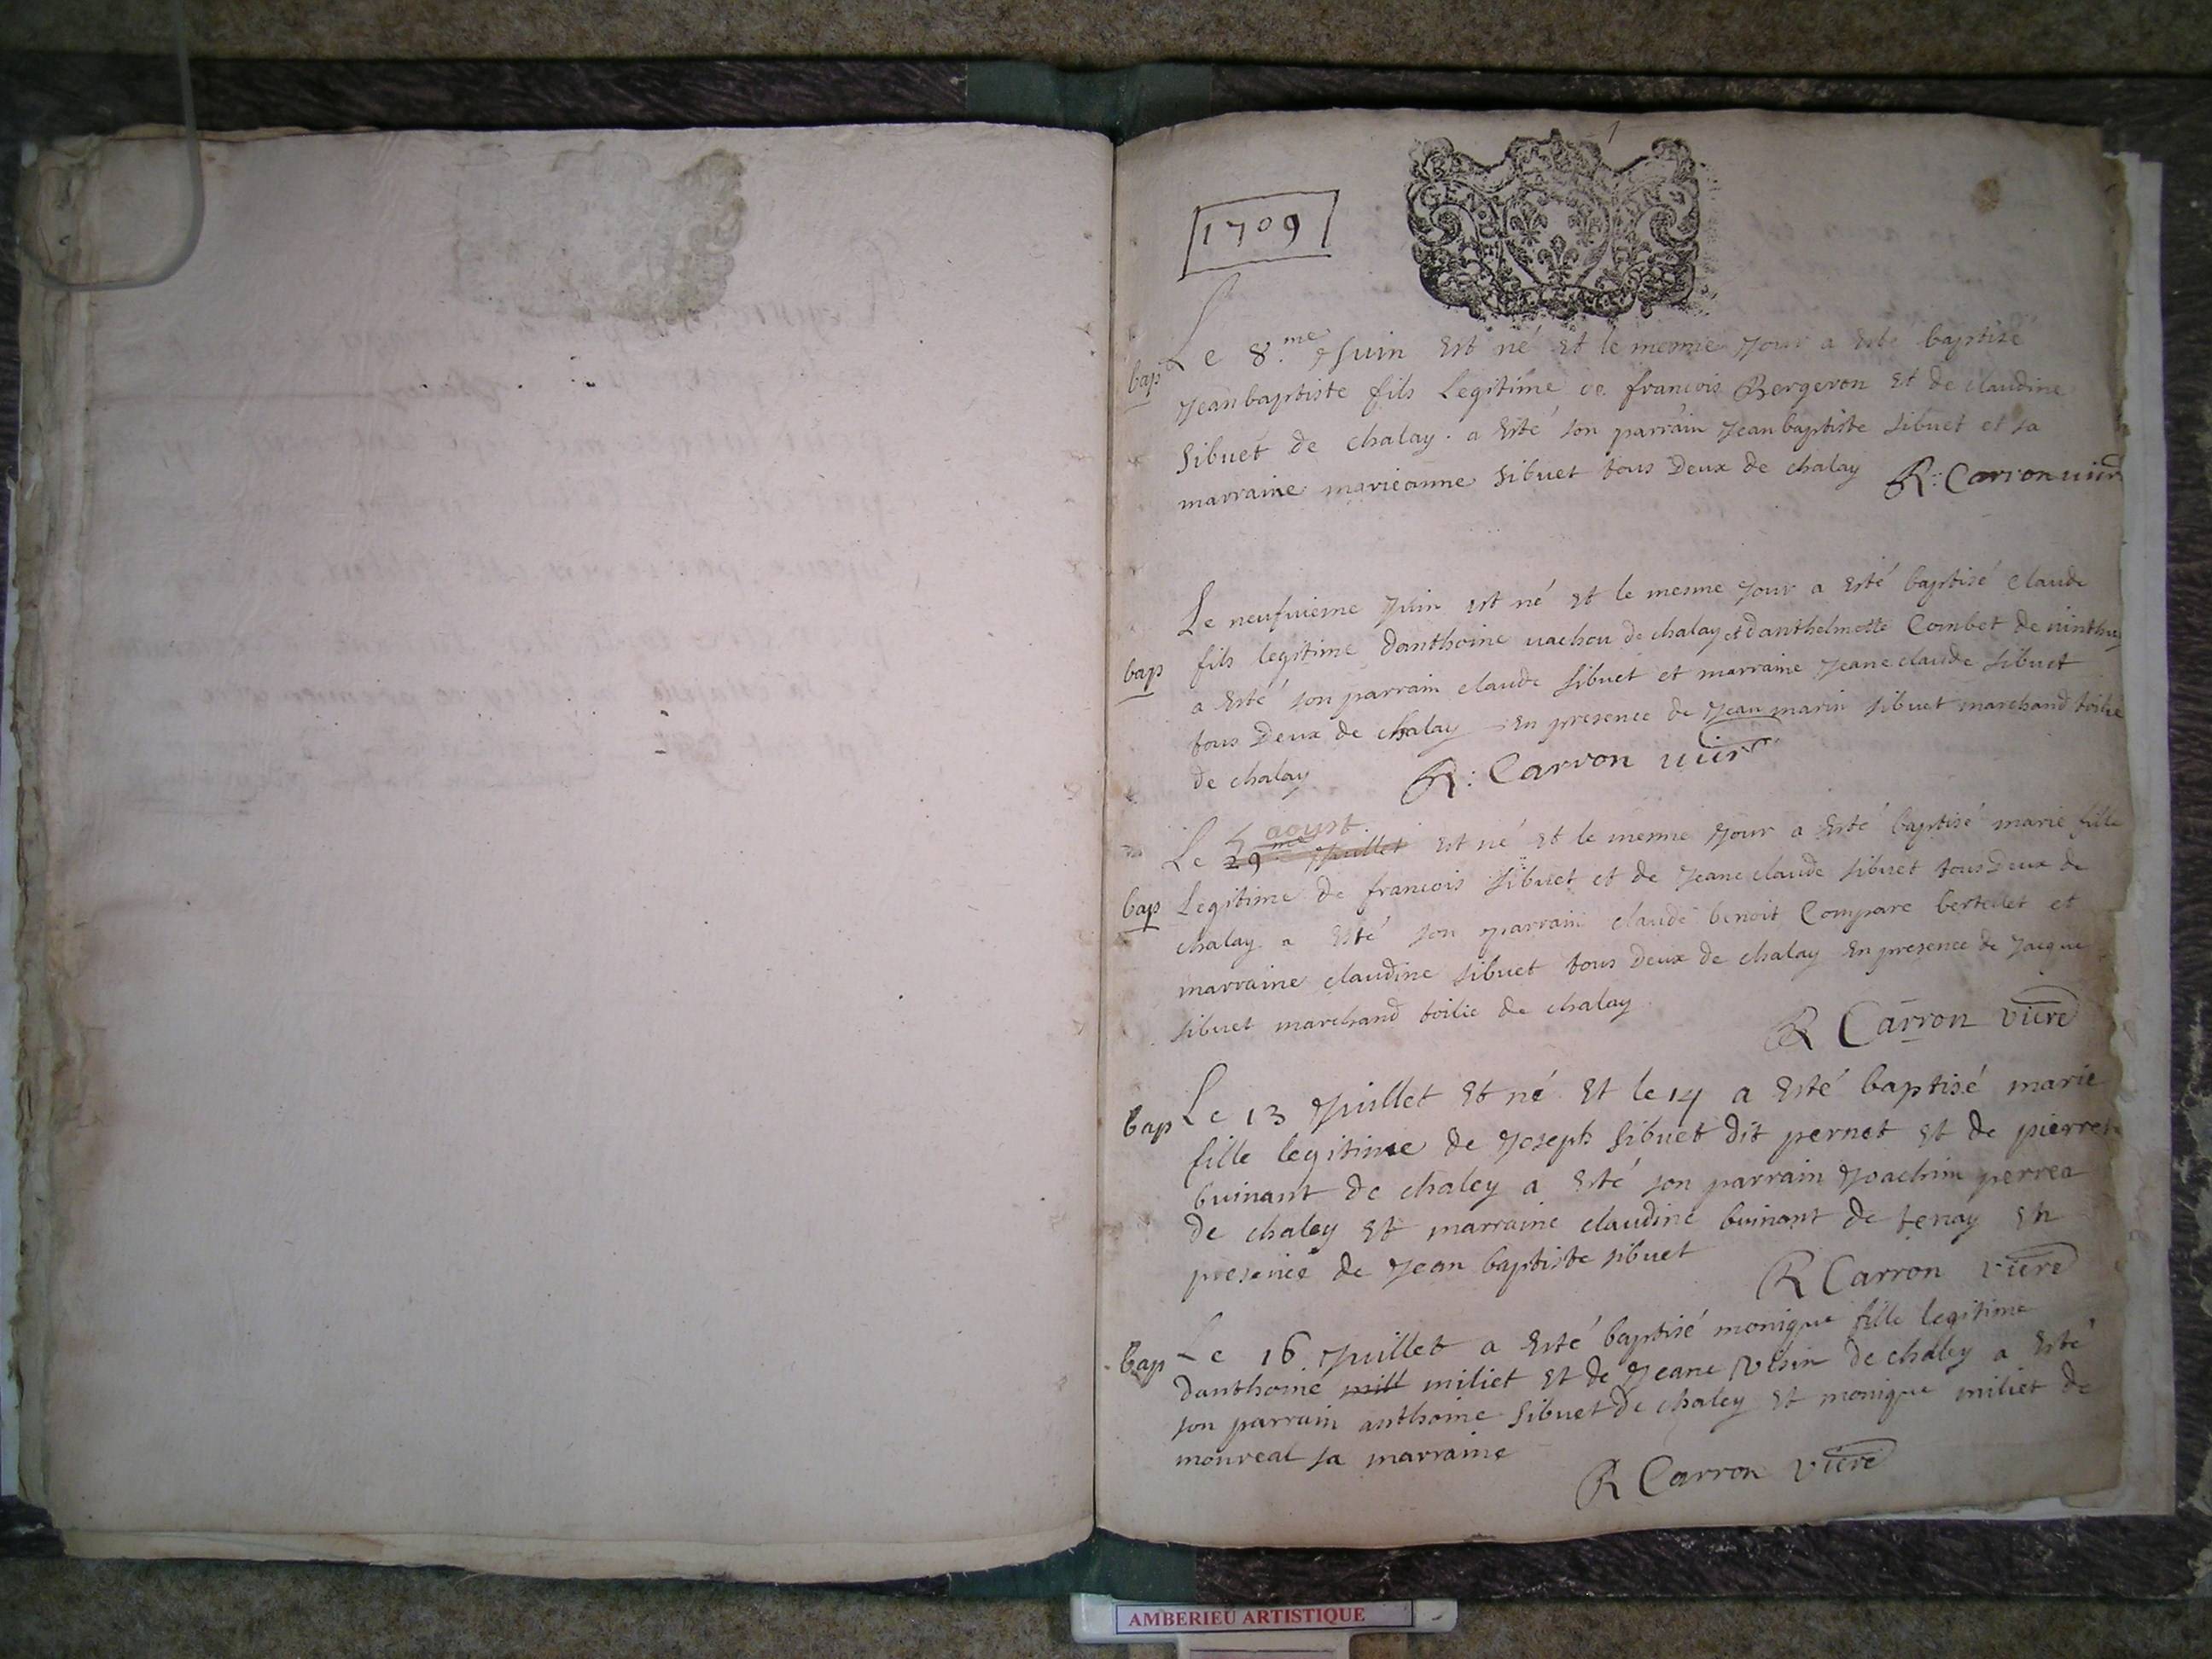 1
1709
GEN
bap Le 8.me Juin est né et le mesme Jour a esté baptisé
Jeanbaptiste fils Legitime de francois Bergeron et de claudine
sibuet de chalay. a esté son parrain Jeanbaptiste sibuet et sa
marraine marieanne sibuet tous Deux de chalay R: Carron
Le neufuieme Juin est né et le mesme Jour a esté baptisé claude
bap fils legitime danthoine uachou de chalay et danthelmette Combet de
a esté son parrain claude sibuet et marraine Jeane claude sibuet
tous Deux de chalay en presence de Jean marin sibuet marchand toilie
de chalay R: Carron uire
5 aoust
Le 29me Juillet est né et le mesme Jour a esté baptisé marie fille
bap Legitime de francois sibuet et de Jeane claude sibuet tous Deux de
chalay a esté son parrain claude benoit Compare bertellet et
marraine claudine sibuet tous Deux de chalay en presence de Jacque
sibuet marchand toilie de chalay
R Carron vicre
bap Le 13 Juillet et né et le 14 a esté baptisé marie
fille legitime de Joseph sibuet dit pernet et de pierrete
buinant de chaley a esté son parrain Joachim perrea
de chaley et marraine claudine buinant de tenay en
presence de Jean baptiste sibuet
R Carron vicre
bap Le 16 Juillet a esté baptisé monique fille legitime
danthoine mill miliet et de Jeane de chaley a esté
son parrain anthoine sibuet de chaley et monique miliet de
monreal sa marraine
R Carron vicre
AMBERIEU ARTISTIQUE